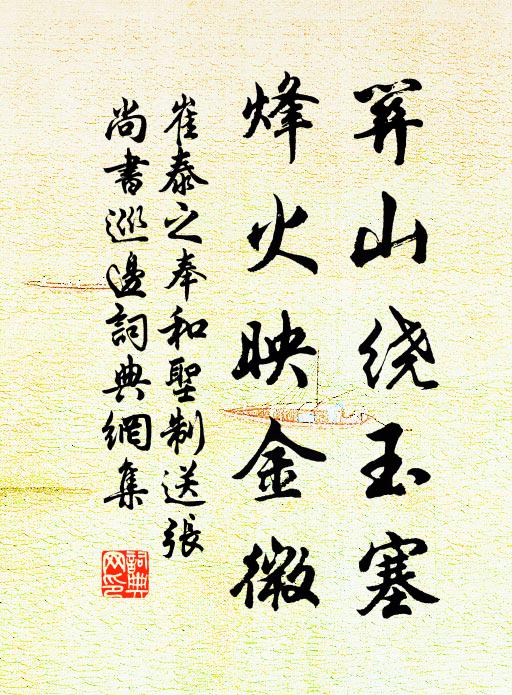 关山绕玉塞
烽火映金微
崔泰之奉和聖制送張
尚書巡邊詞典網集
詞典
网印